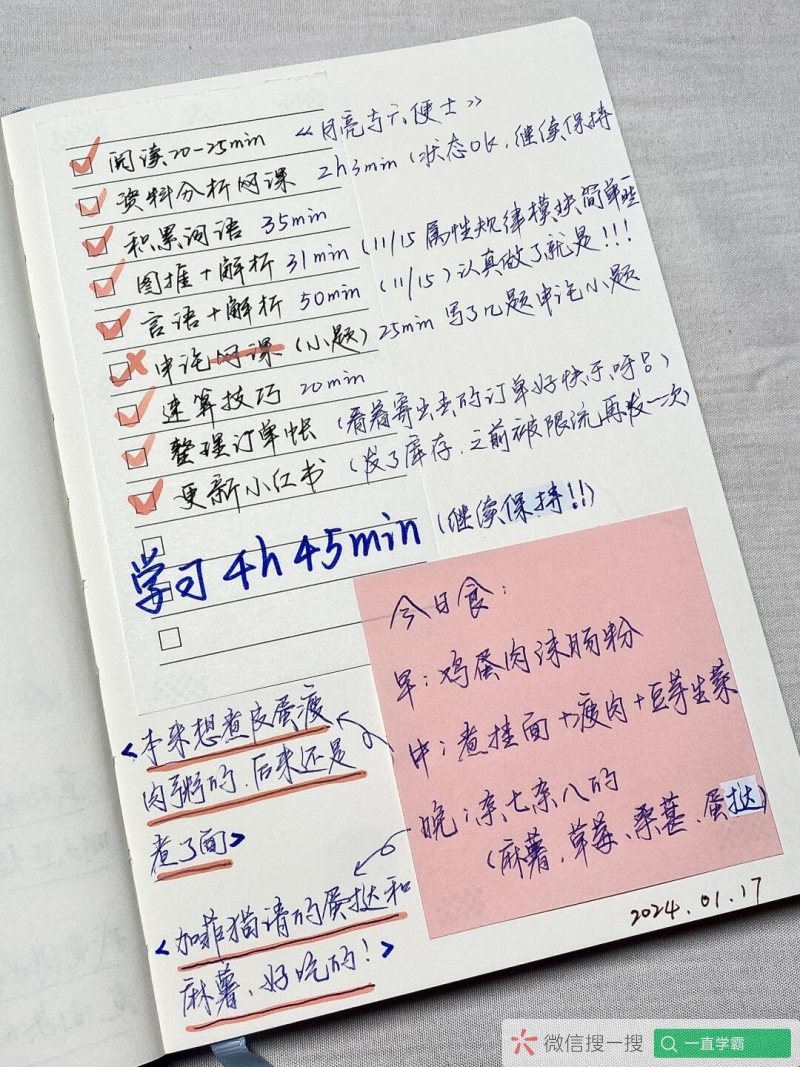 阅读20-25min 《月亮与六便士》
资料分析网课 2h3min(状态OK,继续保持
积累词语 35min
图推+解析 31min(11/15 属性规律模块简单些
言语+解析 50min(11/15)认真做了就是!!!
申论网课(小题)25min 写了几题申论小题
速算技巧 20min
整理订单帐(看着寄出去的订单好快乐呀!)
更新小红书(发了库存,之前被限流再发一次)
学习4h45min(继续保持!!)
今日食:
早:鸡蛋肉沫肠粉
中:煮挂面+瘦肉+豆芽生菜
晚:杂七杂八的
(麻薯、草莓、桑葚、蛋挞)
<本来想煮皮蛋瘦
肉粥的,后来还是
煮了面>
<加菲猫请的蛋挞和
麻薯、好吃的!>
2024.01.17
微信搜一搜 一直学霸